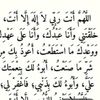 اللَّهُمَّ أَنْتَ رَبِّي لَا إِلَٰهَ إِلَّا أَنْتَ،
خَلَقْتَنِي وَأَنَا عَبْدُكَ وَأَنَا عَلَى عَهْدِكَ
وَوَعْدِكَ مَا اسْتَطَعْتُ، أَعُوذُ بِكَ مِنْ
شَرِّ مَا صَنَعْتُ، أَبُوءُ لَكَ بِنِعْمَتِكَ
عَلَيَّ، وَأَبُوءُ لَكَ بِذَنْبِي، فَاغْفِرْ لِي،